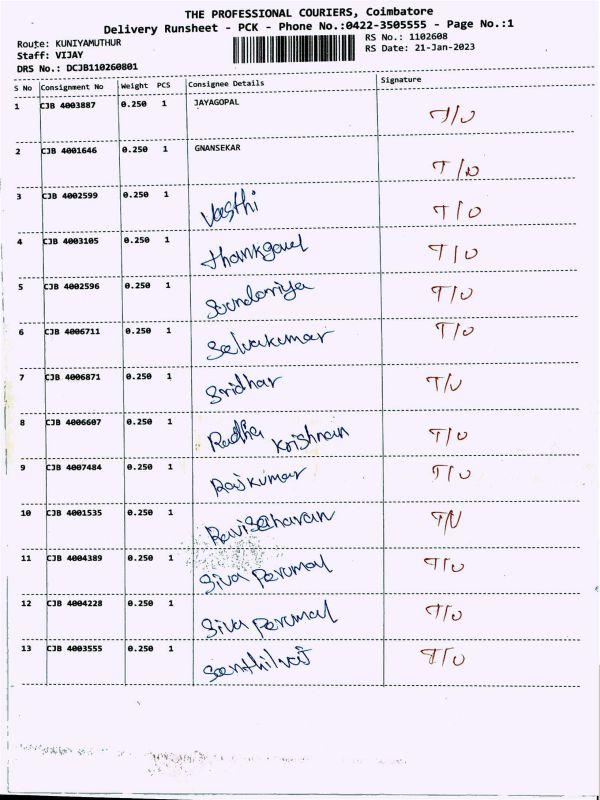 THE PROFESSIONAL COURIERS, Coimbatore
Delivery Runsheet - PCK - Phone No.:0422-3505555 - Page No.:1
Route: KUNIYAMUTHUR
RS No.: 1102608
Staff: VIJAY
RS Date: 21-Jan-2023
DRS No.: DCJB110260801
S No Consignment No Weight PCS Consignee Details Signature
1 CJB 4003887 0.250 1 JAYAGOPAL T/O
2 CJB 4001646 0.250 1 GNANSEKAR T/O
3 CJB 4002599 0.250 1 Vasthi T/O
4 CJB 4003105 0.250 1 thankgavel T/O
5 CJB 4002596 0.250 1 Soundariya T/O
6 CJB 4006711 0.250 1 Selvakumar T/O
7 CJB 4006871 0.250 1 Sridhar T/O
8 CJB 4006607 0.250 1 Radha Krishnan T/O
9 CJB 4007484 0.250 1 Rajkumar T/O
10 CJB 4001535 0.250 1 T/O
11 CJB 4004389 0.250 1 Siva Perumal T/O
12 CJB 4004228 0.250 1 Siva Perumal T/O
13 CJB 4003555 0.250 1 T/O